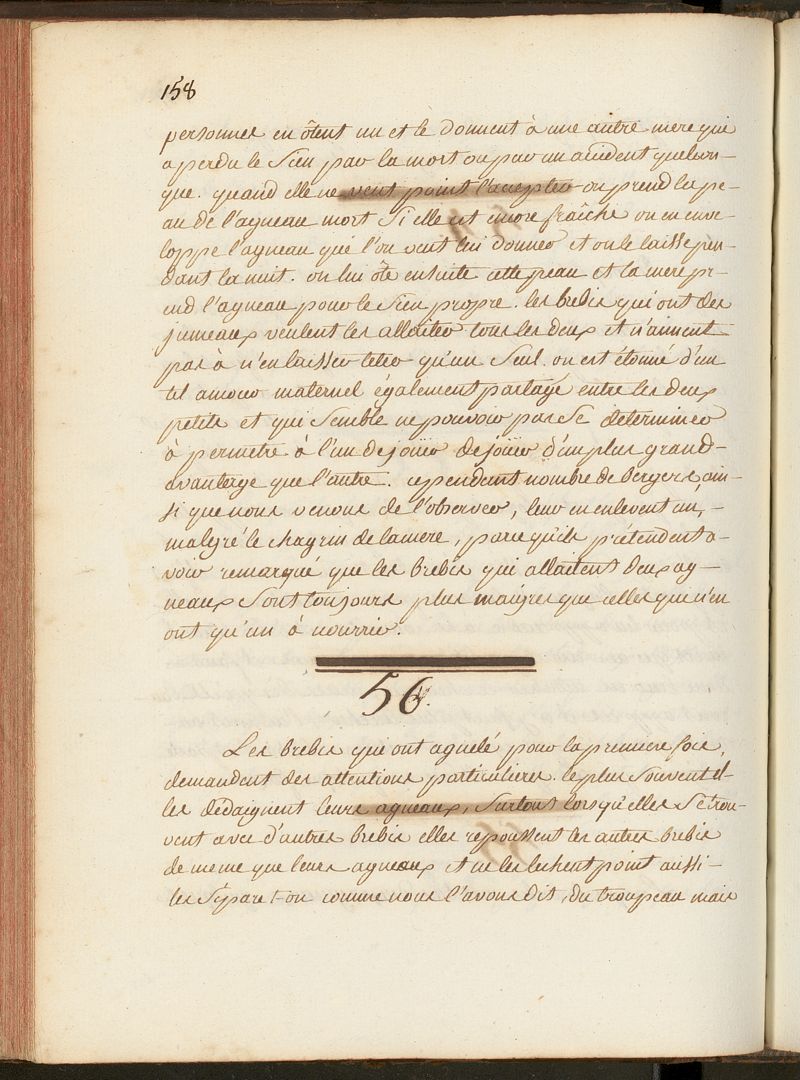 158
personnes en ôtent un et le donnent à une autre mere qui
a perdu le sien par la mort ou par un accident quelcon-
que. quand elle ne veut point l'accepter on prend la pe-
au de l'agneau mort si elle est encore fraîche on en enve-
loppe l'agneau que l'on veut lui donner et on le laisse pen-
dant la nuit. on lui ôte ensuite cette peau et la mere pr-
end l'agneau pour le sien propre. les brebis qui ont des
jumeaux veulent les allaiter tous les deux et n'aiment
pas à n'en laisser teter qu'un seul. on est étonné d'un
tel amour maternel également partagé entre les deux
petits et qui semble ne pouvoir pas se determiner
à permetre à l'un de joüir de joüir d'un plus grand-
avantage que l'autre. cependant nombre de bergers, ain-
si que nous venons de l'observer, leur en enlevent un, -
malgré le chagrin de la mere, parce qu'ils prétendent a-
voir remarqué que les brebis qui allaitent deux ag-
neaux sont toujours plus maigres que celles que n'en
ont qu'un à nourrir.
56.
Les brebis qui ont agnelé pour la premiere fois,
demandent des attentions particulieres. le plus souvent el-
les dédaignent leurs agneaux, surtout lorsqu'elles se trou-
vent avec d'autres brebis elles repoussent les autres brebis
de meme que leurs agneaux et ne les lechent point aussi-
les sépare t-on comme nous l'avons dit, du troupeau mais